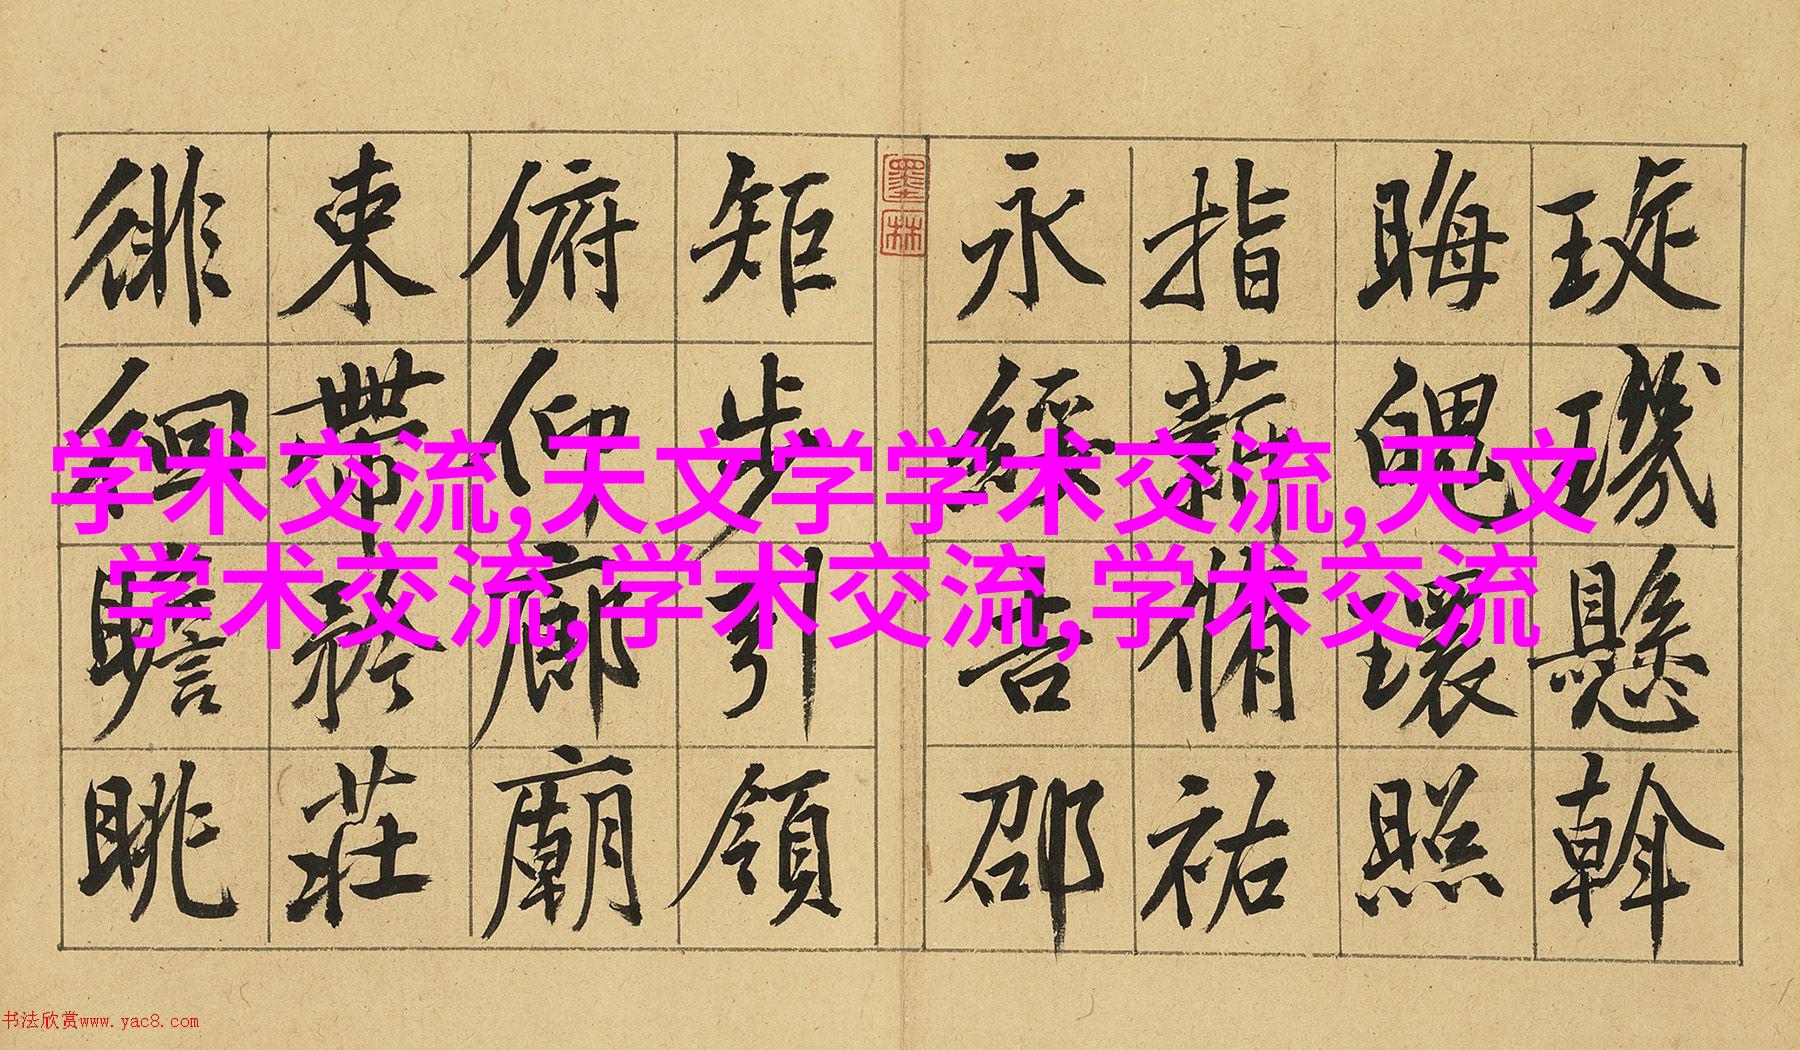 璇璣懸斡
晦魄環照
指薪脩祐
永綏吉邵
墨林
矩步引領
俯仰廊廟
束帶矜莊
徘徊瞻眺
学术交流,天文学学术交流,天文
学术交流,学术交流,学术交流
书法欣赏www.yac8.com